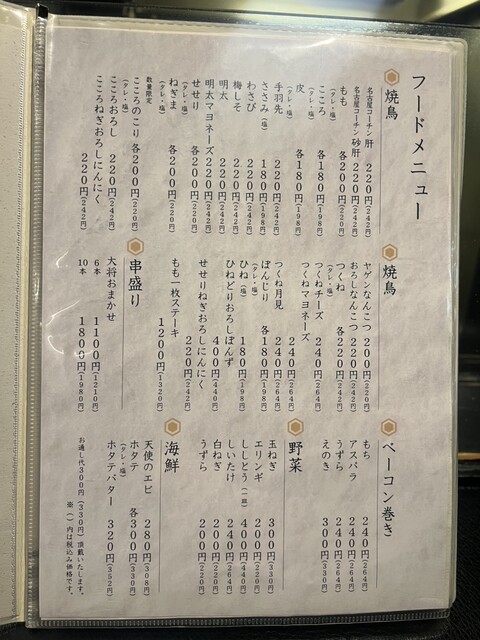 フードメニュー
焼鳥
名古屋コーチン 肝 220円(242円)
名古屋コーチン 砂肝 220円(242円)
もも(タレ・塩) 各200円(220円)
こころ(タレ・塩) 各180円(198円)
皮(タレ・塩) 各180円(198円)
手羽先 220円(242円)
ささみ(塩) 180円(198円)
わさび 220円(242円)
梅しそ 220円(242円)
明太 220円(242円)
明太マヨネーズ 220円(242円)
せせり(タレ・塩) 各200円(220円)
ねぎま(タレ・塩) 各200円(220円)
数量限定
こころのこり(タレ・塩) 各200円(220円)
こころおろし 220円(242円)
こころねぎおろしにんにく 220円(242円)
焼鳥
ヤゲンなんこつ 200円(220円)
おろしなんこつ 220円(242円)
つくね(タレ・塩) 各220円(242円)
つくねチーズ 240円(264円)
つくねマヨネーズ 240円(264円)
つくね月見 240円(264円)
ぼんじり(タレ・塩) 各180円(198円)
ひね(塩) 180円(198円)
ひねどりおろしぽんず 400円(440円)
せせりねぎおろしにんにく 220円(242円)
もも一枚ステーキ 1200円(1320円)
串盛り
大将おまかせ
6本 1100円(1210円)
10本 1800円(1980円)
ベーコン巻き
もち 240円(264円)
アスパラ 240円(264円)
うずら 240円(264円)
えのき 300円(330円)
野菜
玉ねぎ 300円(330円)
エリンギ 200円(220円)
ししとう(一皿) 400円(440円)
しいたけ 240円(264円)
白ねぎ 200円(220円)
うずら 200円(220円)
海鮮
天使のエビ 280円(308円)
ホタテ(タレ・塩) 各300円(330円)
ホタテバター 320円(352円)
お通し代300円(330円)頂戴いたします。
※( )内は税込み価格です。